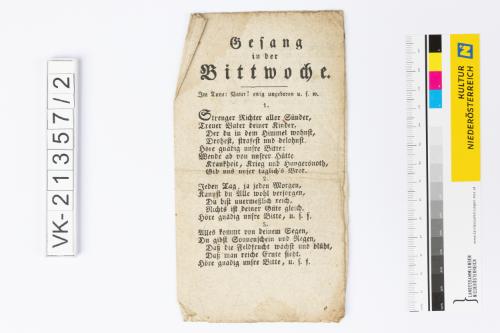 VK-21357/2
Gesang
in der
Bittwoche.
Im Tone: Vater! ewig ungeboren u. s. w.
1.
Strenger Richter aller Sünder,
Treuer Vater deiner Kinder,
Der du in dem Himmel wohnst,
Drohest, strafest und belohnst.
Höre gnädig unsre Bitte:
Wende ab von unsrer Hütte
Krankheit, Krieg und Hungersnoth,
Gib uns unser täglich's Brot.
2.
Jeden Tag, ja jeden Morgen,
Kannst du Alle wohl versorgen,
Du bist unermeßlich reich,
Nichts ist deiner Güte gleich.
Höre gnädig unsre Bitte, u. s. f.
3.
Alles kommt von deinem Segen,
Du gibst Sonnenschein und Regen,
Daß die Feldfrucht wächst und blüht,
Daß man reiche Ernte sieht.
Höre gnädig unsre Bitte, u. s. f.
KULTUR
NIEDERÖSTERREICH
LANDESSAMMLUNGEN
NIEDERÖSTERREICH